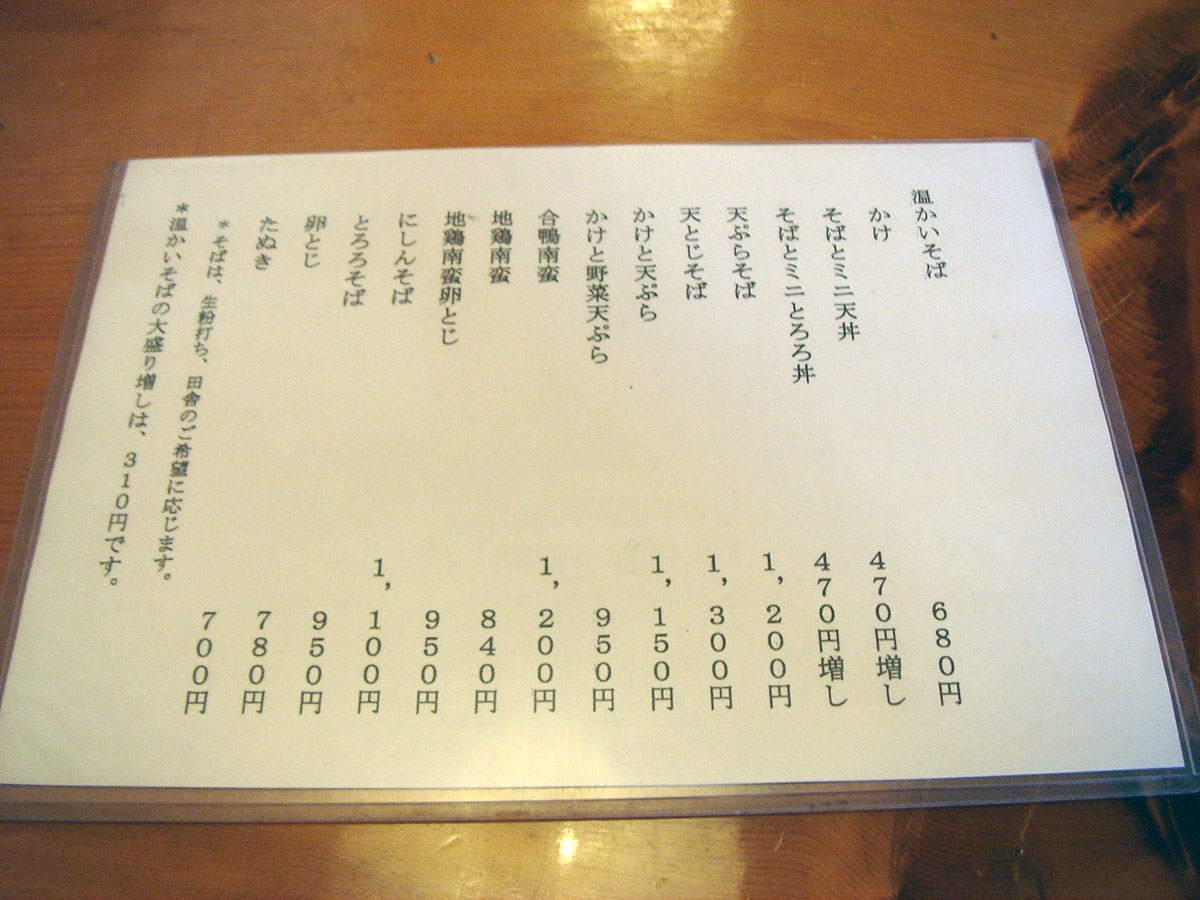 温かいそば
かけ 680円
そばとミニ天丼 470円増し
そばとミニとろろ丼 470円増し
天ぷらそば 1,200円
天とじそば 1,300円
かけと天ぷら 1,150円
かけと野菜天ぷら 950円
合鴨南蛮 1,200円
地鶏南蛮 840円
地鶏南蛮卵とじ 950円
にしんそば 1,100円
とろろそば 950円
卵とじ 780円
たぬき 700円
*そばは、生粉打ち、田舎のご希望に応じます。
*温かいそばの大盛り増しは、310円です。